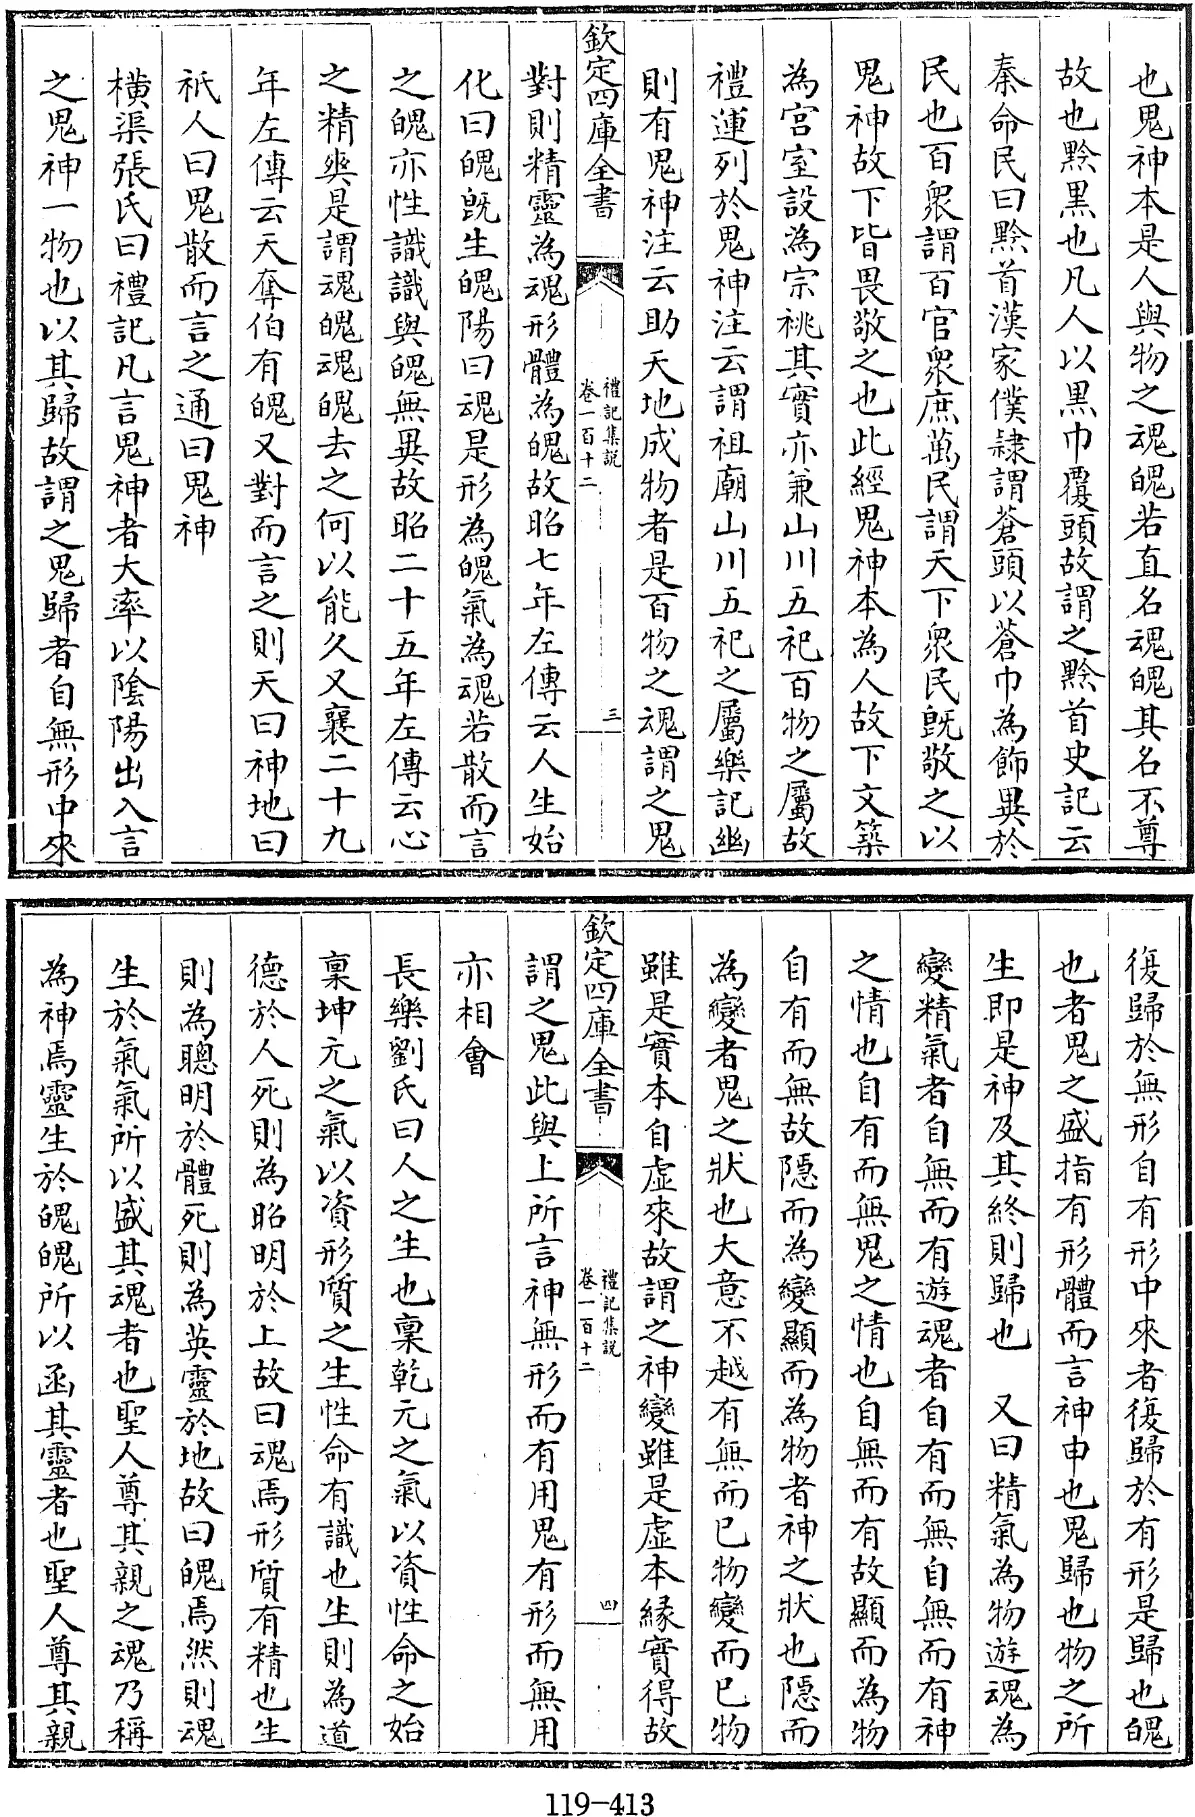 也鬼神本是人與物之魂魄若直名魂魄其名不尊
故也黔黒也凡人以黒巾覆頭故謂之黔首史記云
秦命民曰黔首漢家僕隷謂蒼頭以蒼巾為飾異於
民也百衆謂百官衆庶萬民謂天下衆民旣敬之以
鬼神故下皆畏敬之也此經鬼神本為人故下文築
為宫室設為宗祧其實亦兼山川五祀百物之屬故
禮運列於鬼神注云謂祖廟山川五祀之屬樂記幽
則有鬼神注云助天地成物者是百物之魂謂之鬼
欽定四庫全書
禮記集説
卷一百十二
三
對則精靈為魂形體為魄故昭七年左傳云人生始
化曰魄旣生魄陽曰魂是形為魄氣為魂若散而言
之魄亦性識識與魄無異故昭二十五年左傳云心
之精爽是謂魂魄魂魄去之何以能久又襄二十九
年左傳云天奪伯有魄又對而言之則天曰神地曰
祇人曰鬼散而言之通曰鬼神
橫渠張氏曰禮記凡言鬼神者大率以陰陽出入言
之鬼神一物也以其歸故謂之鬼歸者自無形中來
復歸於無形自有形中來者復歸於有形是歸也魄
也者鬼之盛指有形體而言神申也鬼歸也物之所
生即是神及其終則歸也　又曰精氣為物遊魂為
變精氣者自無而有遊魂者自有而無自無而有神
之情也自有而無鬼之情也自無而有故顯而為物
自有而無故隱而為變顯而為物者神之狀也隱而
為變者鬼之狀也大意不越有無而已物變而已物
雖是實本自虚來故謂之神變雖是虚本緣實得故
欽定四庫全書
禮記集説
卷一百十二
四
謂之鬼此與上所言神無形而有用鬼有形而無用
亦相會
長樂劉氏曰人之生也稟乾元之氣以資性命之始
稟坤元之氣以資形質之生性命有識也生則為道
德於人死則為昭明於上故曰魂焉形質有精也生
則為聰明於體死則為英靈於地故曰魄焉然則魂
生於氣氣所以盛其魂者也聖人尊其親之魂乃稱
為神焉靈生於魄魄所以函其靈者也聖人尊其親
119-413